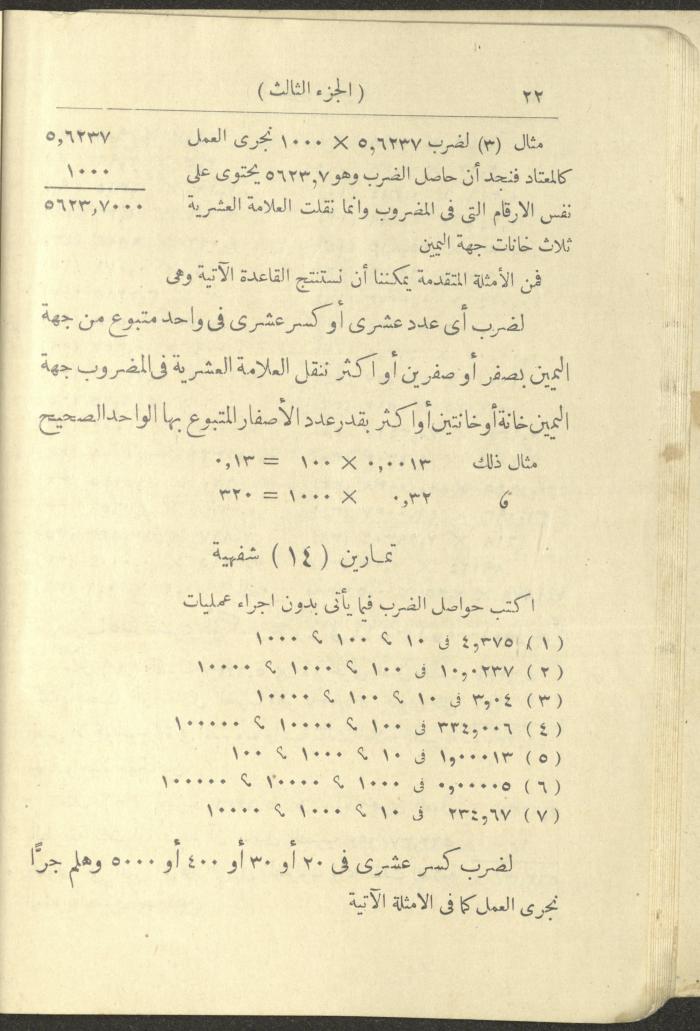 ٢٢ ( الجزء الثالث )
مثال (٣) لضرب ٥,٦٢٣٧ × ١٠٠٠ نجرى العمل ٥,٦٢٣٧
كالمعتاد فنجد أن حاصل الضرب وهو ٥٦٢٣,٧ يحتوى على ١٠٠٠
نفس الارقام التى فى المضروب وانما نقلت العلامة العشرية ٥٦٢٣,٧٠٠٠
ثلاث خانات جهة اليمين
فمن الأمثلة المتقدمة يمكننا أن نستنتج القاعدة الآتية وهى
لضرب أى عدد عشرى أو كسر عشرى فى واحد متبوع من جهة
اليمين بصفر أو صفرين أو اكثر ننقل العلامة العشرية فى المضروب جهة
اليمين خانة أو خانتين أو اكثر بقدر عدد الأصفار المتبوع بها الواحد الصحيح
مثال ذلك ٠,٠٠١٣ × ١٠٠ = ٠,١٣
و ٠,٣٢ × ١٠٠٠ = ٣٢٠
تمارين ( ١٤ ) شفهية
اكتب حواصل الضرب فيما يأتى بدون اجراء عمليات
( ١ ) ٤,٣٧٥ فى ١٠ ؟ ١٠٠ ؟ ١٠٠٠
( ٢ ) ١٠,٠٢٣٧ فى ١٠٠ ؟ ١٠٠٠ ؟ ١٠٠٠٠
( ٣ ) ٣,٠٤ فى ١٠ ؟ ١٠٠ ؟ ١٠٠٠٠
( ٤ ) ٣٣٤,٠٠٦ فى ١٠٠ ؟ ١٠٠٠٠ ؟ ١٠٠٠٠٠
( ٥ ) ١,٠٠٠١٣ فى ١٠ ؟ ١٠٠٠ ؟ ١٠٠
( ٦ ) ٠,٠٠٠٠٥ فى ١٠٠٠ ؟ ١٠٠٠٠ ؟ ١٠٠٠٠٠
( ٧ ) ٢٣٤,٦٧ فى ١٠ ؟ ١٠٠٠ ؟ ١٠٠٠٠
لضرب كسر عشرى فى ٢٠ أو ٣٠ أو ٤٠٠ أو ٥٠٠٠ وهلم جرًّا
نجرى العمل كما فى الامثلة الآتية